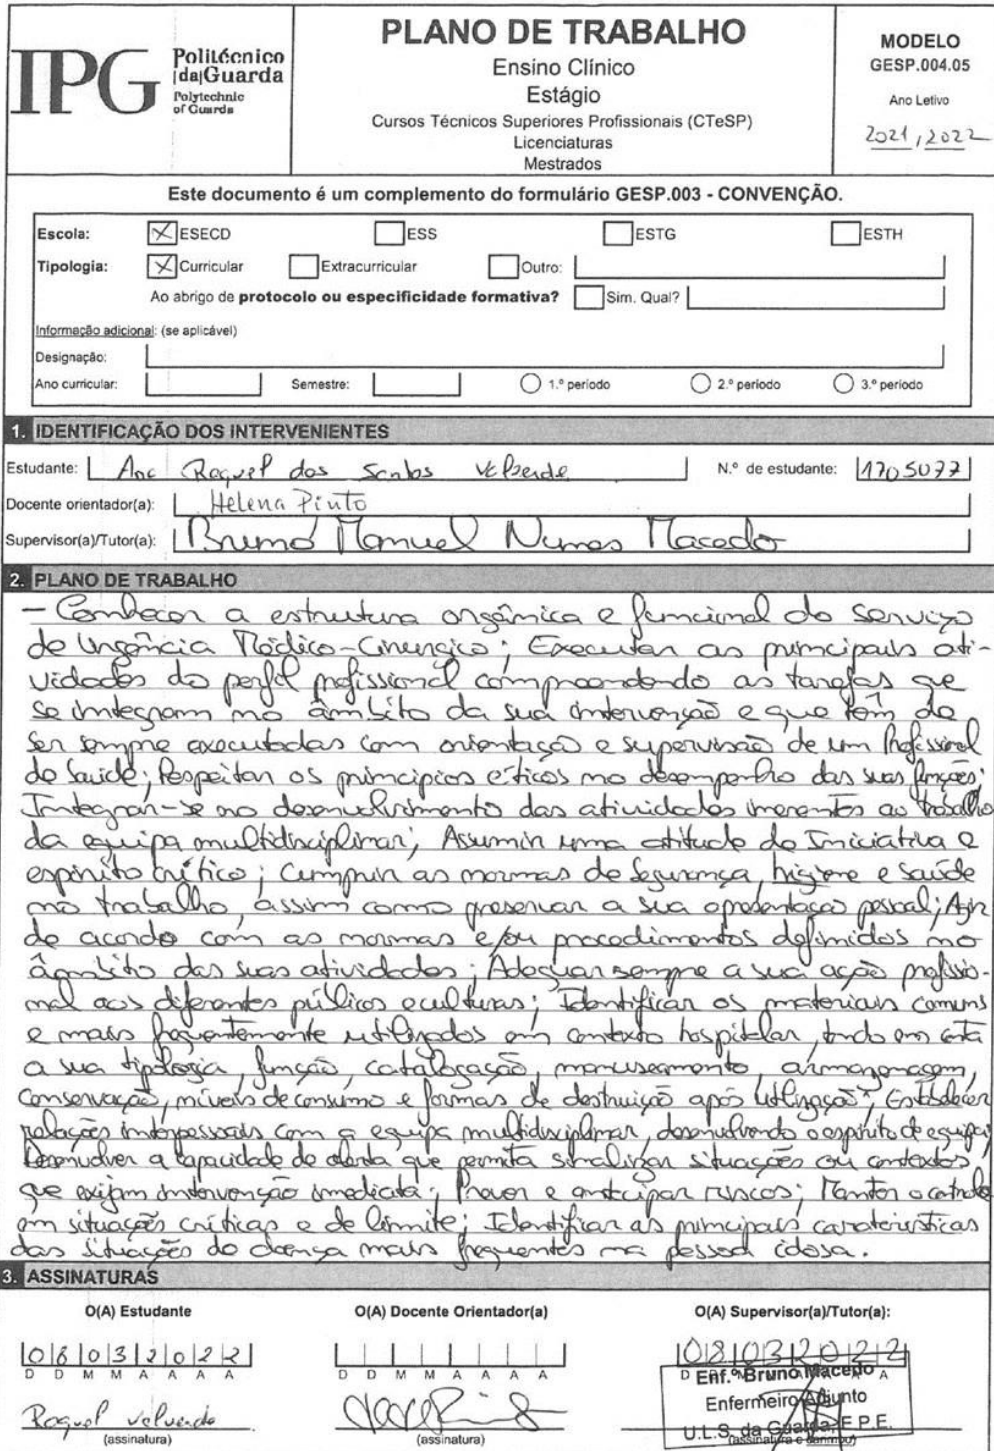 IPG
Politécnico
|da|Guarda
Polytechnic
of Guarda
PLANO DE TRABALHO
Ensino Clínico
Estágio
Cursos Técnicos Superiores Profissionais (CTeSP)
Licenciaturas
Mestrados
MODELO
GESP.004.05
Ano Letivo
2021/2022
Este documento é um complemento do formulário GESP.003 - CONVENÇÃO.
Escola: X ESECD ESS ESTG ESTH
Tipologia: X Curricular Extracurricular Outro:
Ao abrigo de protocolo ou especificidade formativa? Sim. Qual?
Informação adicional: (se aplicável)
Designação:
Ano curricular: Semestre: 1.º período 2.º período 3.º período
1. IDENTIFICAÇÃO DOS INTERVENIENTES
Estudante: Ana Raquel dos Santos Velverde N.º de estudante: 1705077
Docente orientador(a): Helena Pinto
Supervisor(a)/Tutor(a): Bruno Manuel Nunes Macedo
2. PLANO DE TRABALHO
- Conhecer a estrutura orgânica e funcional do serviço
de Urgência Médico-Cirurgica; Executar as principais ati-
vidades do perfil profissional compreendendo as tarefas que
se integram no âmbito da sua intervenção e que têm de
ser sempre executadas com orientação e supervisão de um Profissional
de Saúde; Respeitar os princípios éticos no desempenho das suas funções;
Integrar-se no desenvolvimento das atividades inerentes ao trabalho
da equipa multidisciplinar; Assumir uma atitude de Iniciativa e
espírito crítico; Cumprir as normas de Segurança, higiene e saúde
no trabalho, assim como preservar a sua apresentação pessoal; Agir
de acordo com as normas e/ou procedimentos definidos no
âmbito das suas atividades; Adequar sempre a sua ação profissio-
nal aos diferentes públicos e culturas; Identificar os materiais comuns
e mais frequentemente utilizados em contexto hospitalar, tendo em conta
a sua tipologia, função, catalogação, manuseamento, armazenagem,
conservação, níveis de consumo e formas de destruição após utilização; Estabelecer
relações interpessoais com a equipa multidisciplinar, desenvolvendo o espírito de equipa;
Desenvolver a capacidade de alerta que permita sinalizar situações ou contextos
que exijam intervenção imediata; Prever e antecipar riscos; Manter o controlo
em situações críticas e de limite; Identificar as principais caraterísticas
das situações de doença mais frequentes na pessoa idosa.
3. ASSINATURAS
O(A) Estudante O(A) Docente Orientador(a) O(A) Supervisor(a)/Tutor(a):
08032022 08032022
D D M M A A A A D D M M A A A A D A
Enf.º Bruno Macedo
Enfermeiro Adjunto
U.L.S. da Guarda, E.P.E.
Raquel Velverde
(assinatura) (assinatura) (assinatura e carimbo)